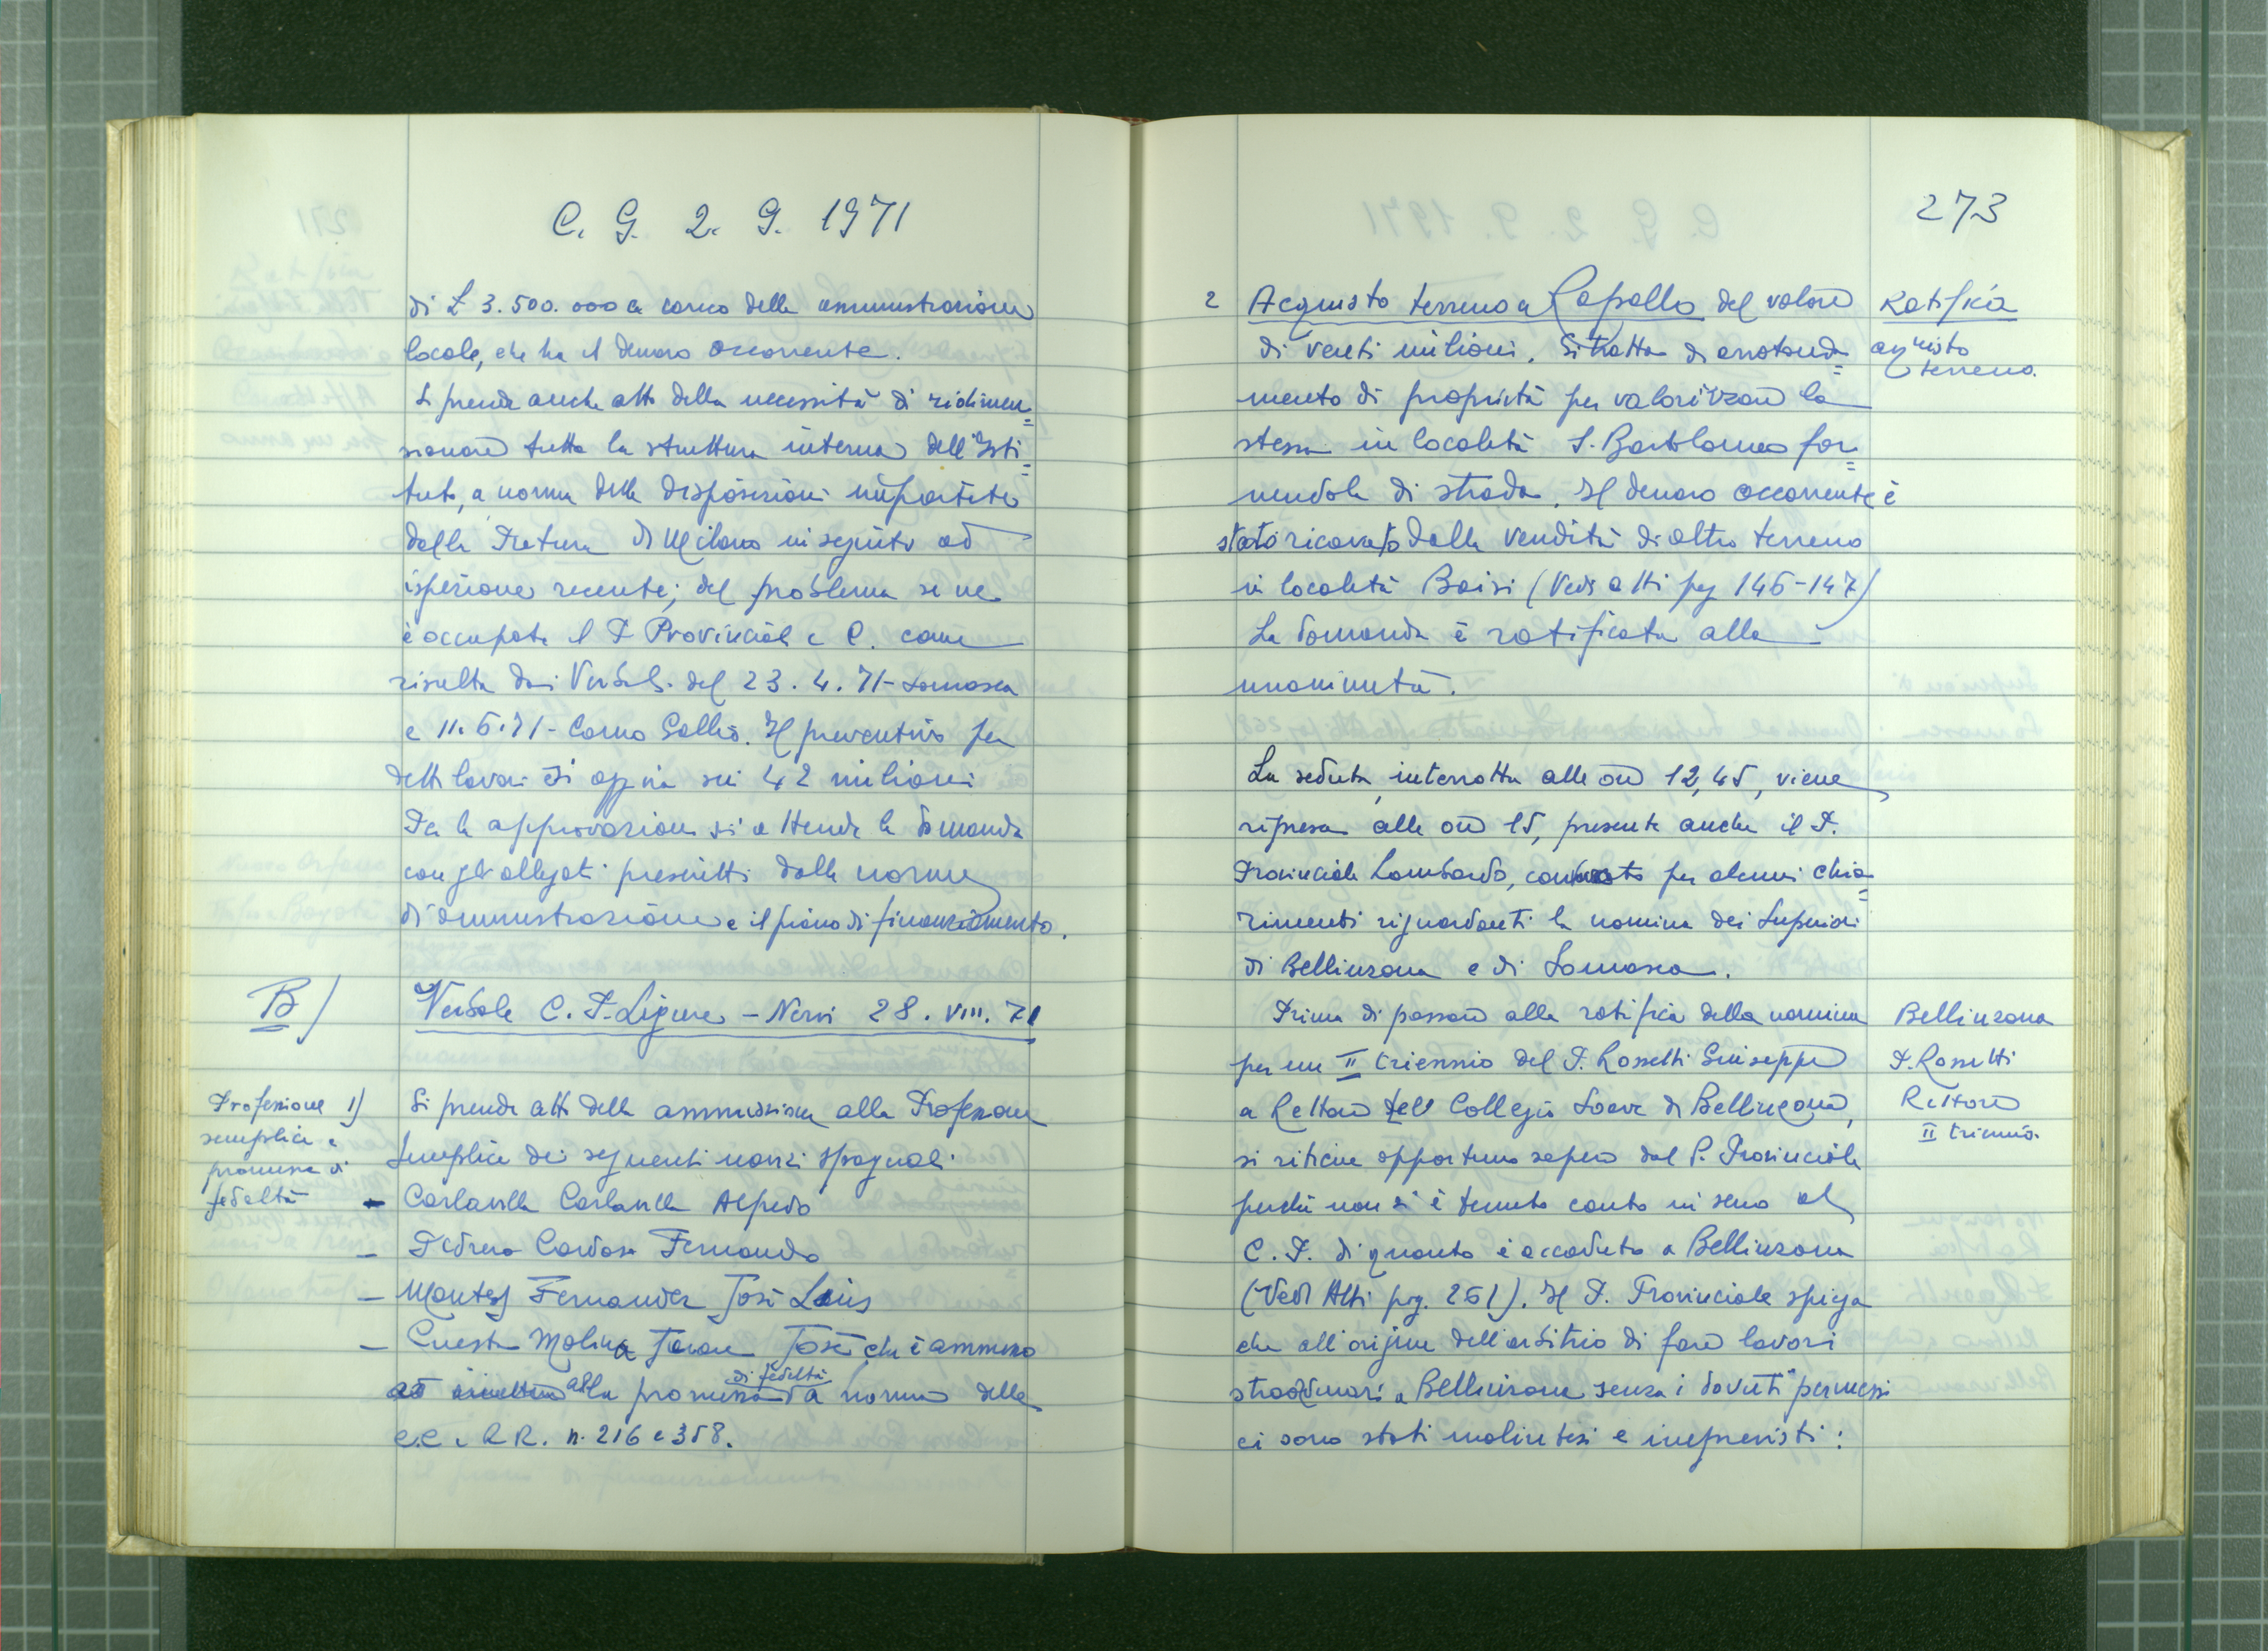 C. G. 2. 9. 1971
di £ 3.500.000 a carico della amministrazione
locale, che ha il denaro occorrente.
Si prende anche atto della necessità di ridimen=
sionare tutta la struttura interna dell'Isti=
tuto, a norma delle disposizioni impartite
dalla Pretura di Milano in seguito ad
ispezione recente; del problema se ne
è occupato il P. Provinciale e C. come
risulta dai Verbali del 23.4.71 - Somasca
e 11.6.71 - Como Gallio. Il preventivo per
detti lavori si aggira sui 42 milioni
Per la approvazione si attende la domanda
con gli allegati prescritti dalle norme
di amministrazione e il piano di finanziamento.
B) Verbale C. P. Ligure - Nervi 28. VIII. 71
Professione 1)
semplice e
promessa di
fedeltà
Si prende atto della ammissione alla Professione
semplice dei seguenti novizi spagnoli:
- Carlavilla Carlavilla Alfredo
- Pedrero Cardoso Fernando
- Montes Fernandez José Luis
- Cuesta Molina José che è ammesso
alla promessa di fedeltà a norma delle
CC. e RR. n. 216 e 358.
273
2 Acquisto terreno a Rapallo del valore
di venti milioni. Si tratta di arrotonda=
mento di proprietà per valorizzare la
stessa in località S. Bartolomeo for=
nendola di strada. Il denaro occorrente è
stato ricavato dalla vendita di altro terreno
in località Boisi (Vedi atti pag 146-147)
La domanda è ratificata alla
unanimità.
Ratifica
acquisto
terreno
La seduta, interrotta alle ore 12,45, viene
ripresa alle ore 15, presente anche il P.
Provinciale Lombardo, convocato per alcuni chia=
rimenti riguardanti la nomina dei Superiori
di Bellinzona e di Somasca.
Prima di passare alla ratifica della nomina
per un II triennio del P. Rossetti Giuseppe
a Rettore del Collegio Soave di Bellinzona,
si ritiene opportuno sapere dal P. Provinciale
perché non si è tenuto conto in seno al
C. P. di quanto è accaduto a Bellinzona
(Vedi Atti pag. 261). Il P. Provinciale spiega
che all'origine dell'arbitrio di fare lavori
straordinari a Bellinzona senza i dovuti permessi
ci sono stati malintesi e imprevisti:
Bellinzona
P. Rossetti
Rettore
II triennio